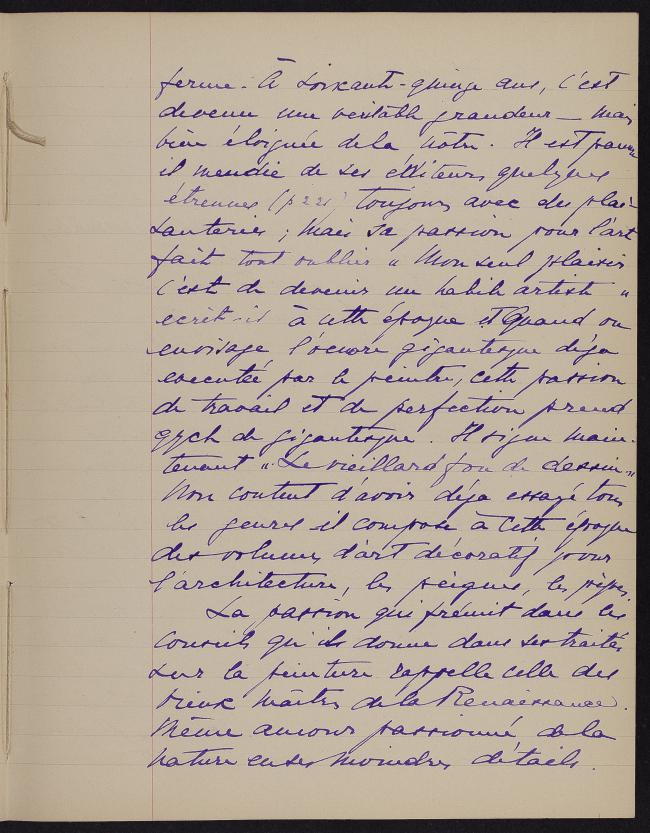 ferme. À soixante-quinze ans, c'est
devenu une véritable grandeur — mais
bien éloignée de la nôtre. Il est pauvre
il mendie de ses éditeurs quelques
étrennes (p 221) toujours avec des plai-
santeries ; mais sa passion pour l'art
fait tout oublier « Mon seul plaisir
c'est de devenir un habile artiste »
écrit-il à cette époque et Quand on
envisage l'œuvre gigantesque déjà
executée par le peintre, cette passion
de travail et de perfection prend
qqch de gigantesque. Il signe main-
tenant « Le vieillard fou de dessin »
Non content d'avoir déja essayé tous
les genres il compose à cette époque
des volumes d'art décoratif pour
l'architecture, les peignes, les pipes.
La passion qui frémit dans les
conseils qu'ils donne dans ses traités
sur la peinture rappelle celle des
vieux maîtres de la Renaissance.
Même amour passionné de la
nature en ses moindres détails.